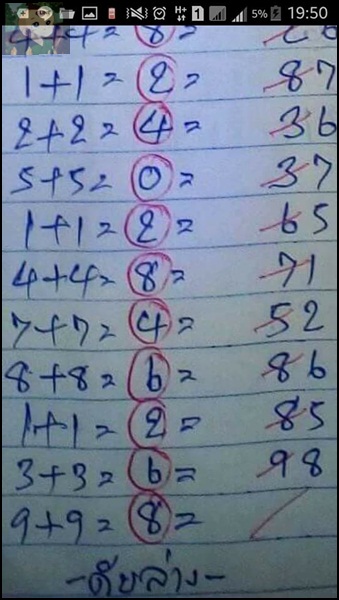 5% 19:50
4+4= 8= 26
1+1= 2= 87
2+2= 4= 36
5+5= 0= 37
1+1= 2= 65
4+4= 8= 71
7+7= 4= 52
8+8= 6= 86
1+1= 2= 85
3+3= 6= 98
9+9= 8=
-ดับล่าง-